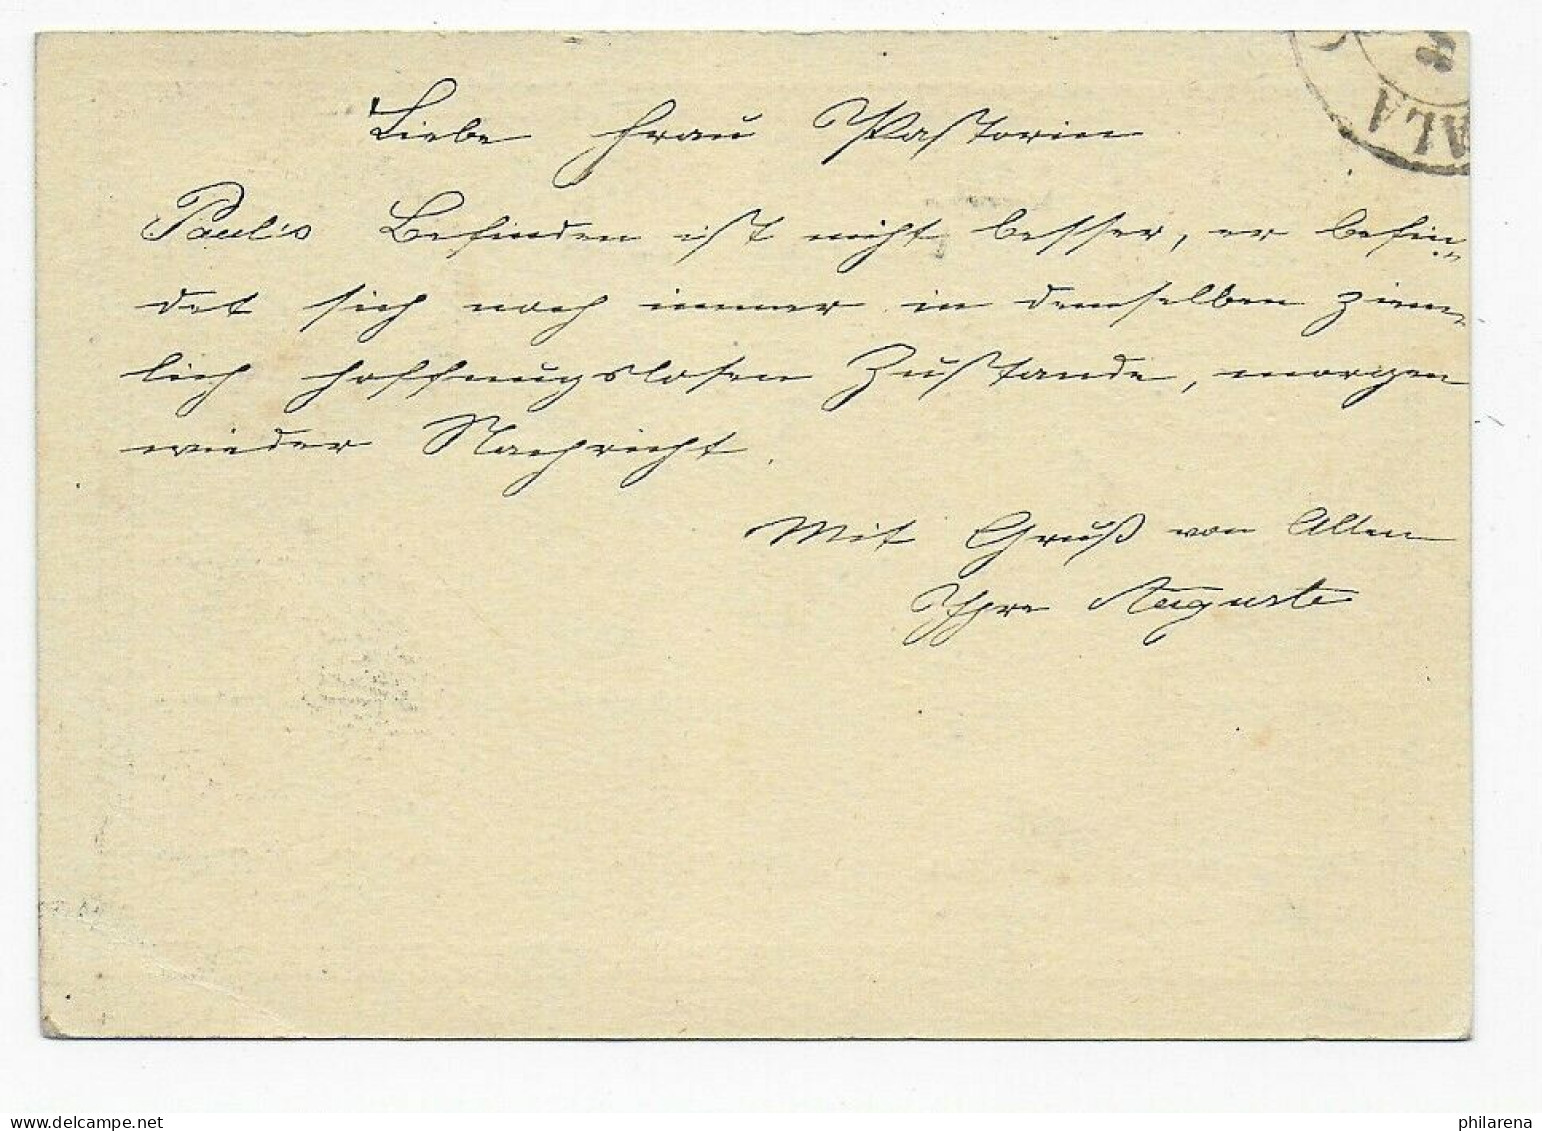 ALA
Liebe Frau Pastorin
Paul's Befinden ist nicht besser, er befin-
det sich noch immer in demselben ziem-
lich hoffnungslosen Zustande, morgen
wieder Nachricht.
Mit Gruß von Allen
Ihre Auguste
philarena.com